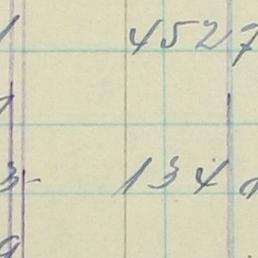 1 4527
1
3- 134
9